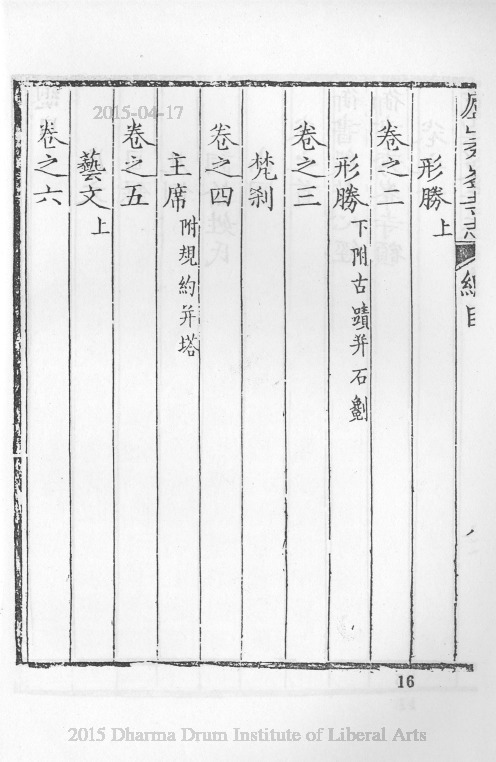 形勝上
卷之二
形勝下附古蹟并石劖
卷之三
梵剎
卷之四
主席附規約并塔
卷之五
藝文上
卷之六
寺志
總目
16
2015-04-17
2015 Dharma Drum Institute of Liberal Arts